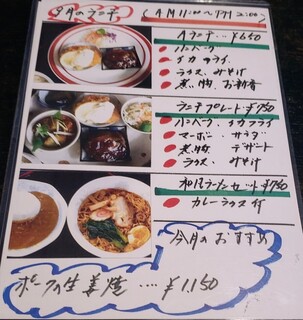 9月のランチ
(AM11:00〜PM2:00)
Aランチ…¥640
ハンバーグ
イカフライ
ライス、みそ汁
煮物、お新香
ランチプレート…¥950
ハンバーグ、イカフライ
マーボー、サラダ
煮物、デザート
ライス、みそ汁
和風ラーメンセット…¥750
カレーライス付
今月のおすすめ
ポークの生姜焼 ‥‥ ¥1,150